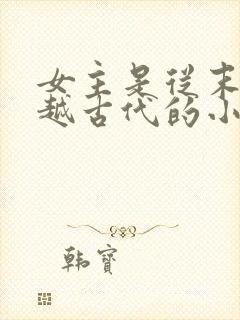 女主是從末
越古代的小
韩寶